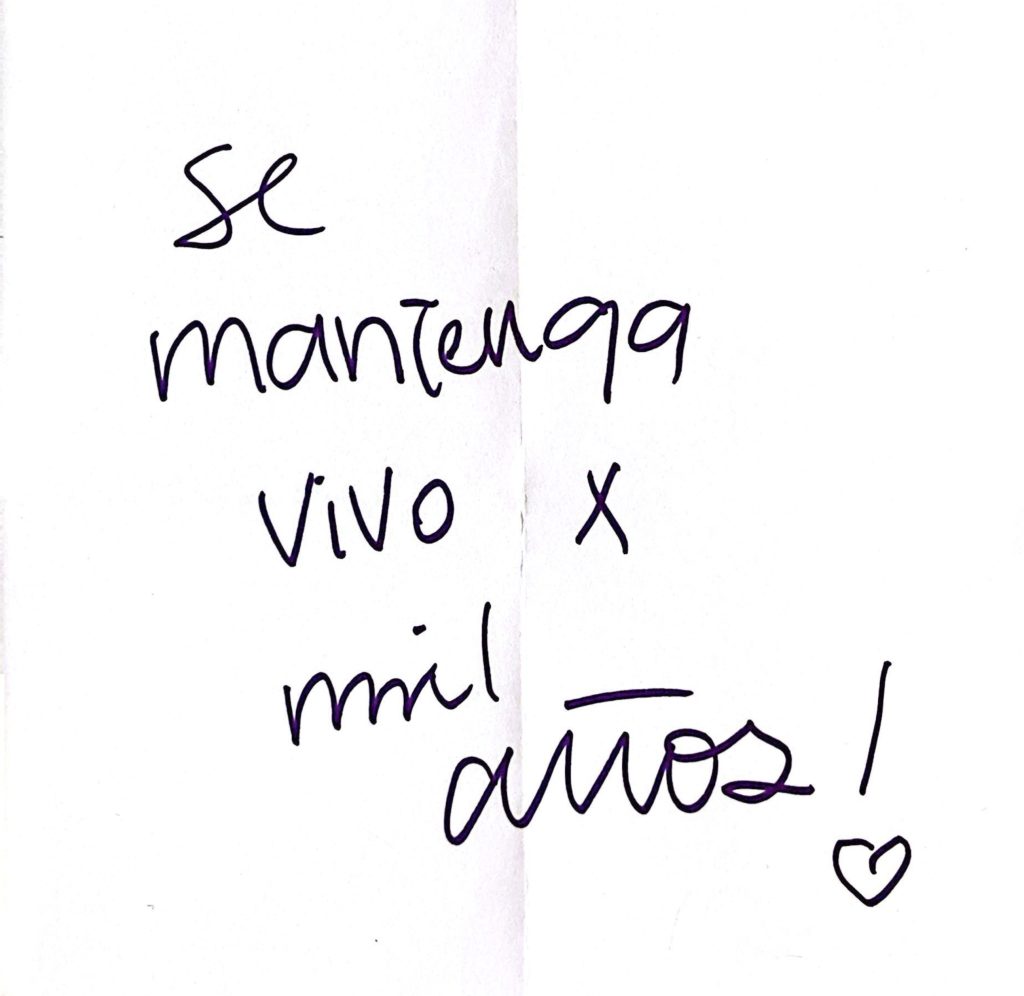 se
mantenga
vivo x
mil
años!